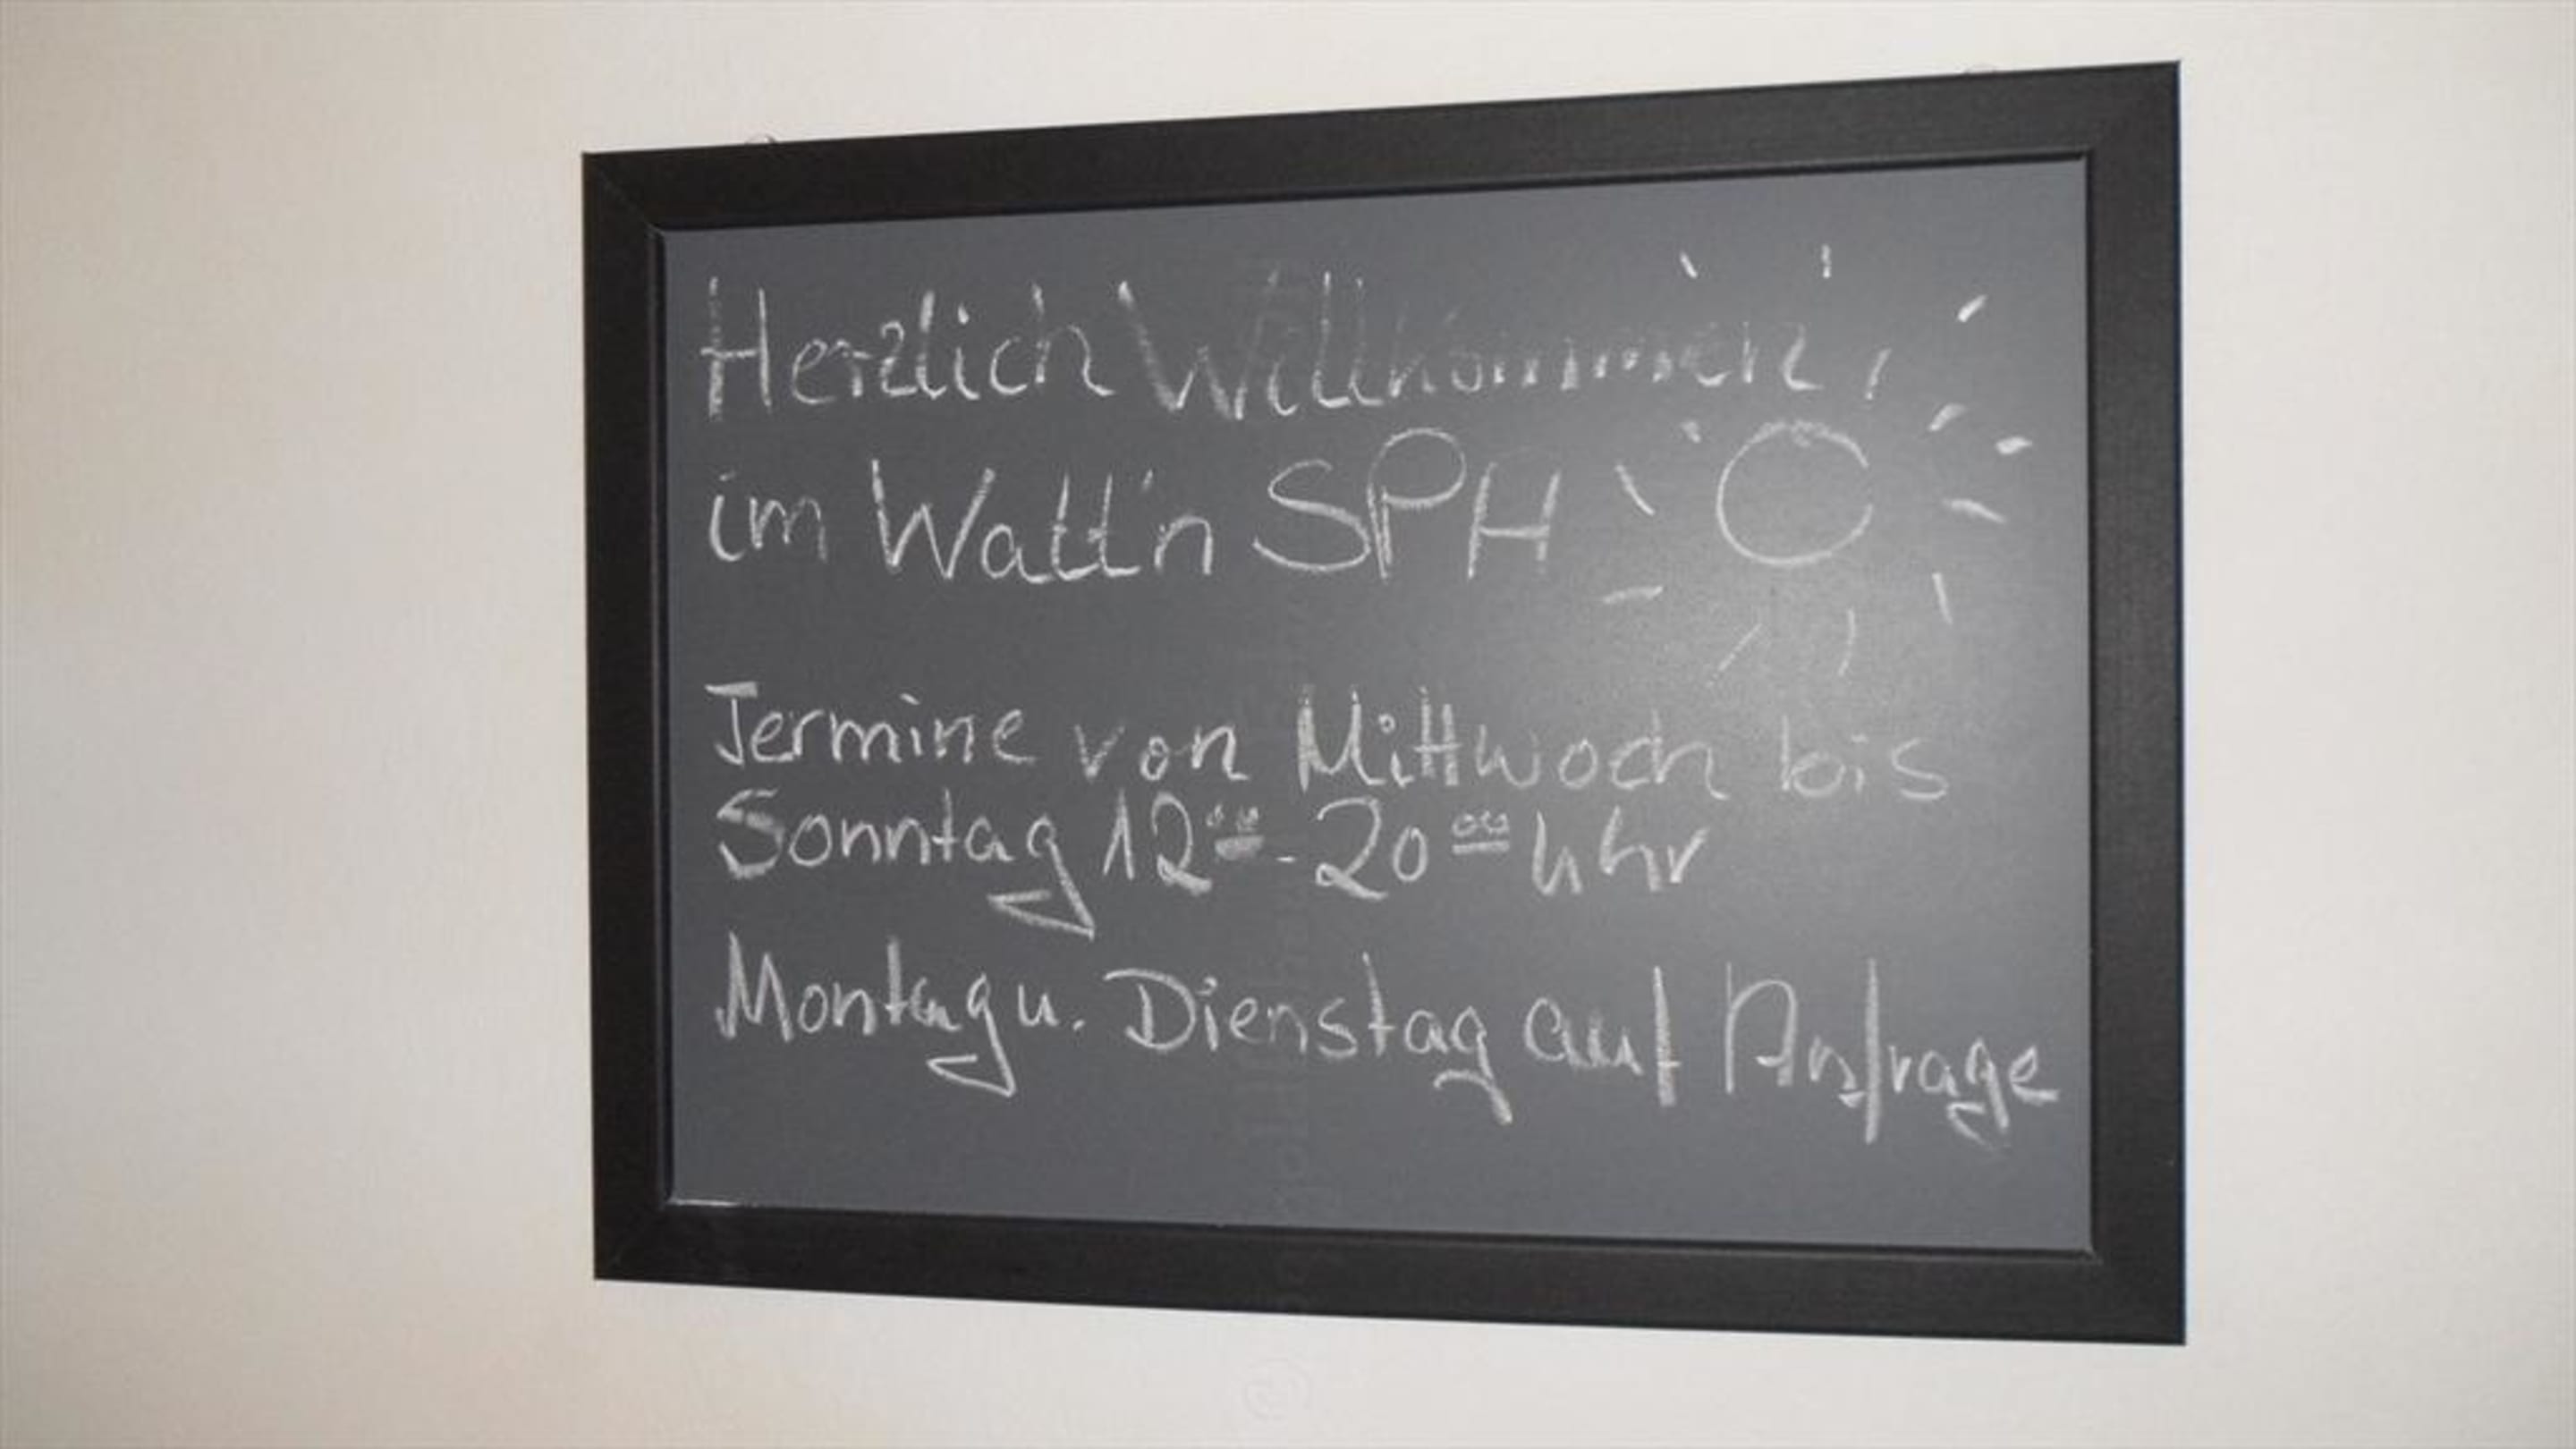 Herzlich Willkommen,
im Watt'n SPH
Termine von Mittwoch bis
Sonntag 12⁰⁰-20⁰⁰ Uhr
Montag u. Dienstag auf Anfrage